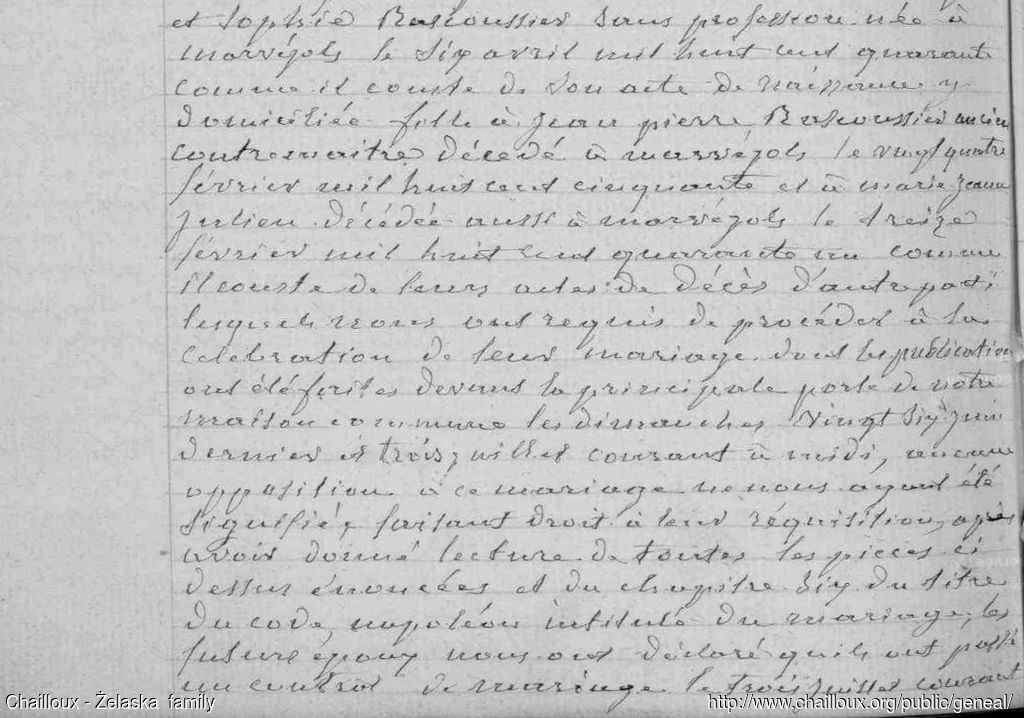 et Sophie Rascoussier sans profession née à
marvéjols le six avril mil huit cent quarante
comme il conste de son acte de naissance y
domiciliée fille à jean pierre Rascoussier ancien
contremaitre décédé à marvéjols le vingt quatre
février mil huit cent cinquante et à marie jeanne
julien décédée aussi à marvéjols le treize
février mil huit cent quarante un comme
il conste de leurs actes de décès d'autre part;
lesquels nous ont requis de procéder à la
celebration de leur mariage dont les publications
ont été faites devant la principale porte de notre
maison commune les dimanches vingt six juin
dernier et trois juillet courant à midi, aucune
opposition à ce mariage ne nous ayant été
signifiée, faisant droit à leur réquisition, après
avoir donné lecture de toutes les pièces ci
dessus énoncées et du chapitre six du titre
du code napoléon intitulé du mariage, les
futurs époux nous ont déclaré qu'ils ont passé
un contrat de mariage le trois juillet courant
Chailloux - Želaska family
http://www.chailloux.org/public/geneal/